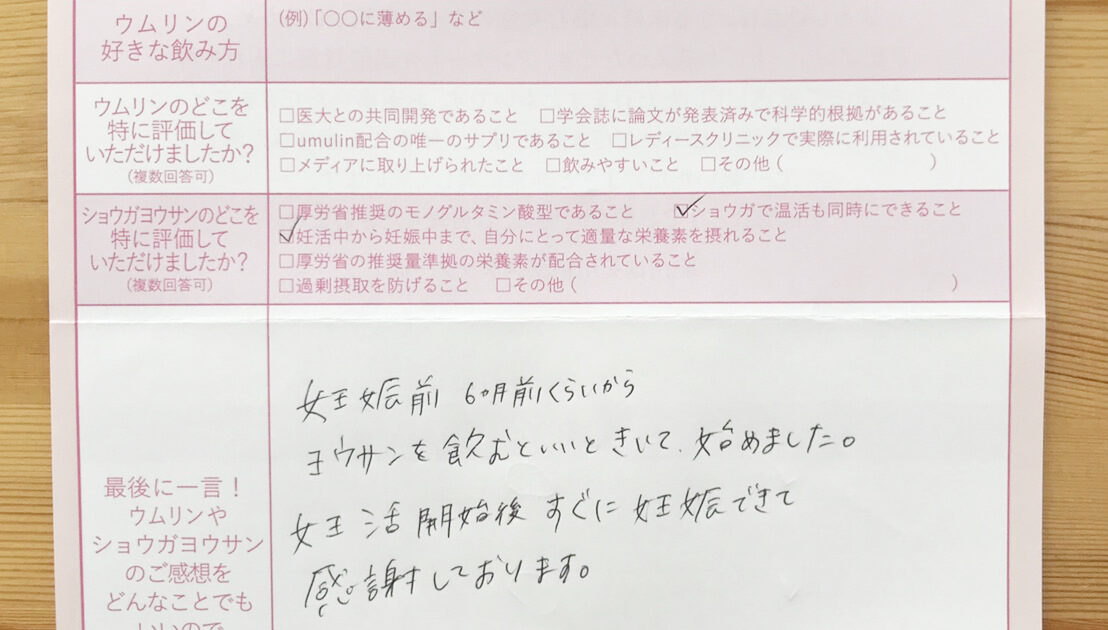 ウムリンの
好きな飲み方
(例)「〇〇に薄める」など
ウムリンのどこを
特に評価して
いただけましたか?
(複数回答可)
□医大との共同開発であること □学会誌に論文が発表済みで科学的根拠があること
□umulin配合の唯一のサプリであること □レディースクリニックで実際に利用されていること
□メディアに取り上げられたこと □飲みやすいこと □その他( )
ショウガヨウサンのどこを
特に評価して
いただけましたか?
(複数回答可)
□厚労省推奨のモノグルタミン酸型であること ☑ショウガで温活も同時にできること
☑妊活中から妊娠中まで、自分にとって適量な栄養素を摂れること
□厚労省の推奨量準拠の栄養素が配合されていること
□過剰摂取を防げること □その他( )
最後に一言!
ウムリンや
ショウガヨウサン
のご感想を
どんなことでも
いいので
妊娠前 6ヵ月前くらいから
ヨウサンを飲むといいときいて、始めました。
妊活開始後すぐに妊娠できて
感謝しております。